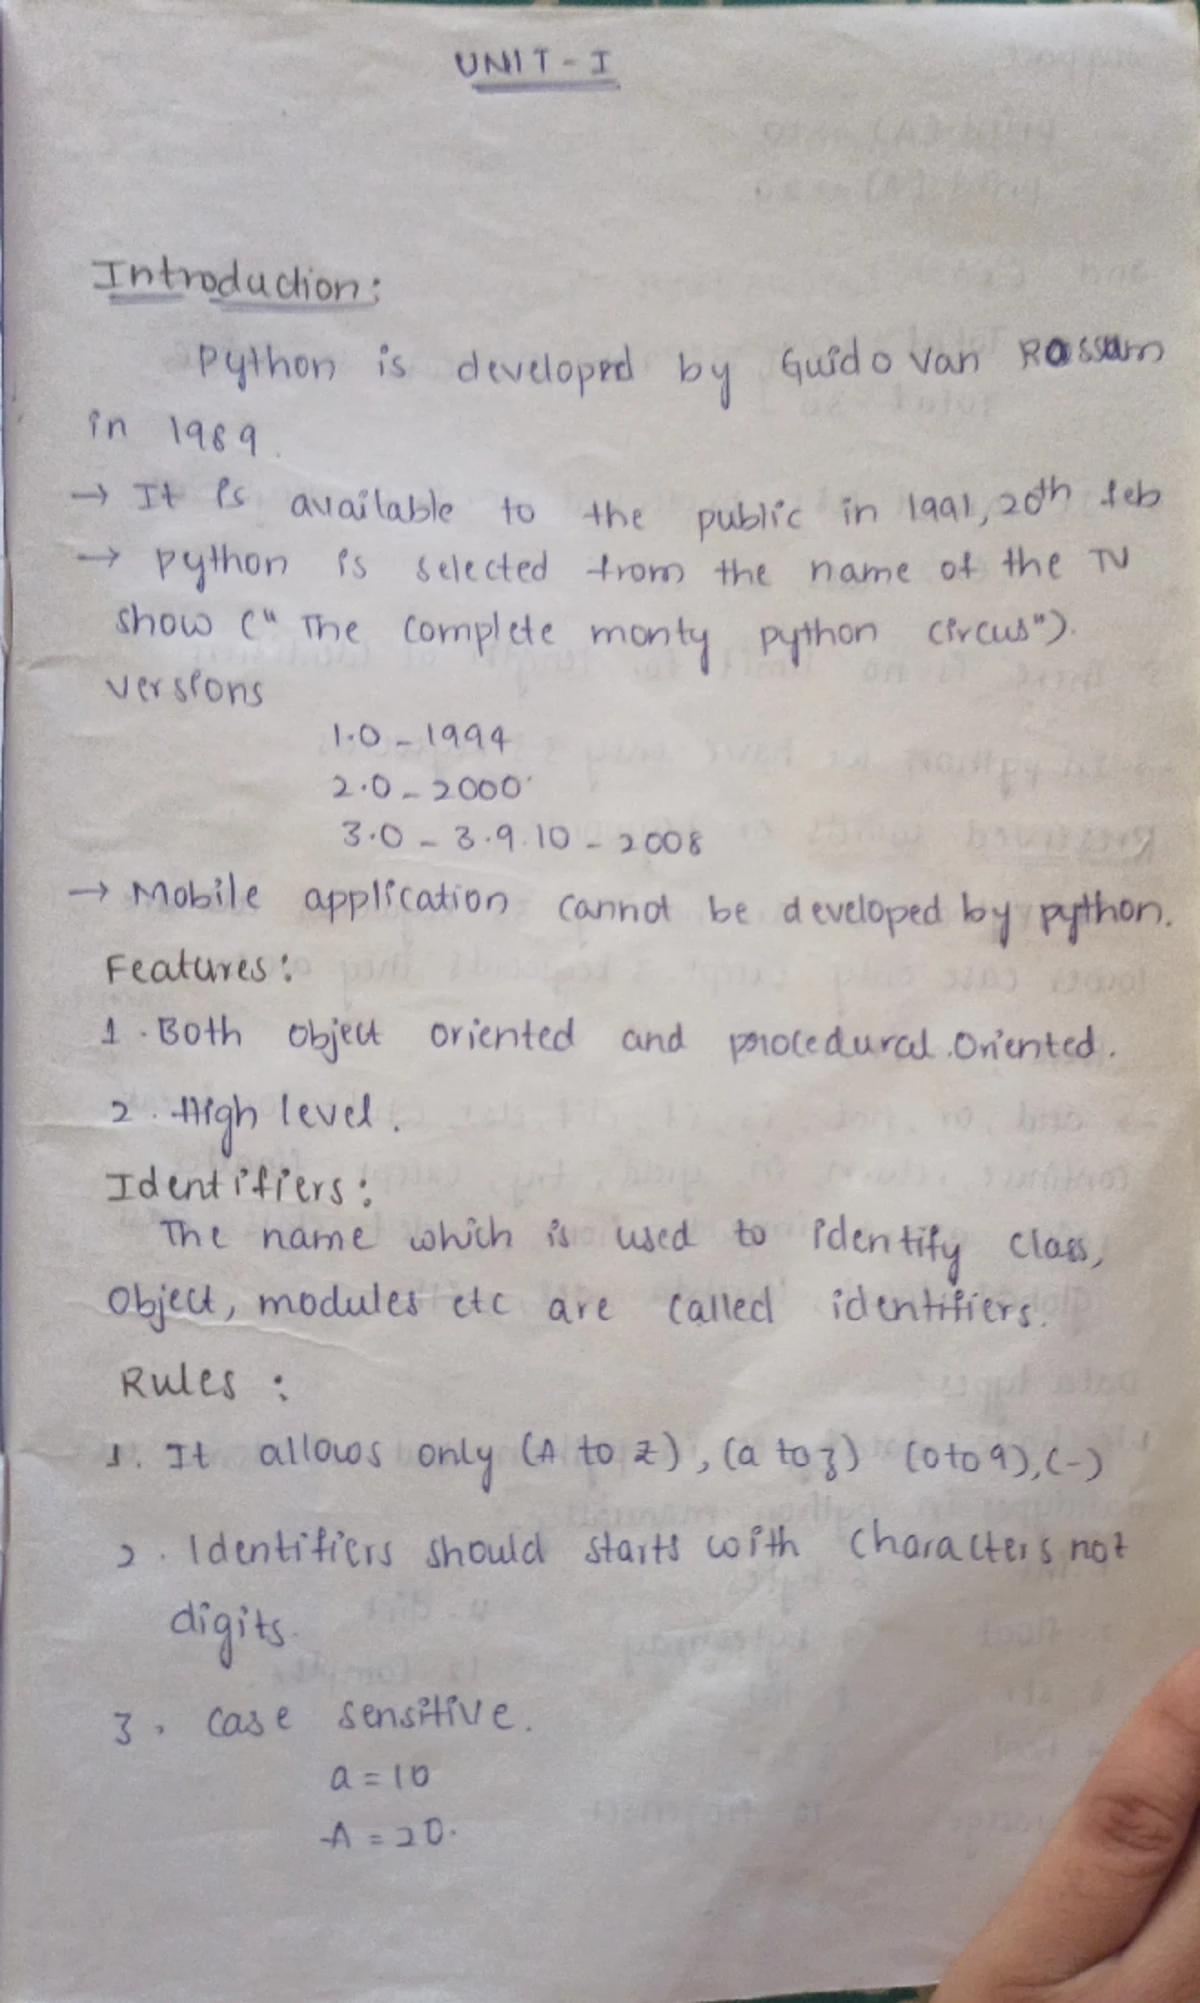 UNIT - I
Introduction:
Python is developed by Guido Van Rossum
in 1989.
→ It is available to the public in 1991, 20th feb
→ python is selected from the name of the TV
show (" The Complete monty python circus").
versions
1.0 - 1994
2.0 - 2000
3.0 - 3.9.10 - 2008
→ Mobile application cannot be developed by python.
Features:
1. Both object oriented and procedural oriented.
2. High level.
Identifiers:
The name which is used to identify class,
Object, modules etc are called identifiers.
Rules :
1. It allows only (A to Z), (a to z) (0 to 9), (-)
2. Identifiers should starts with characters not
digits.
3. case sensitive.
a = 10
A = 20.